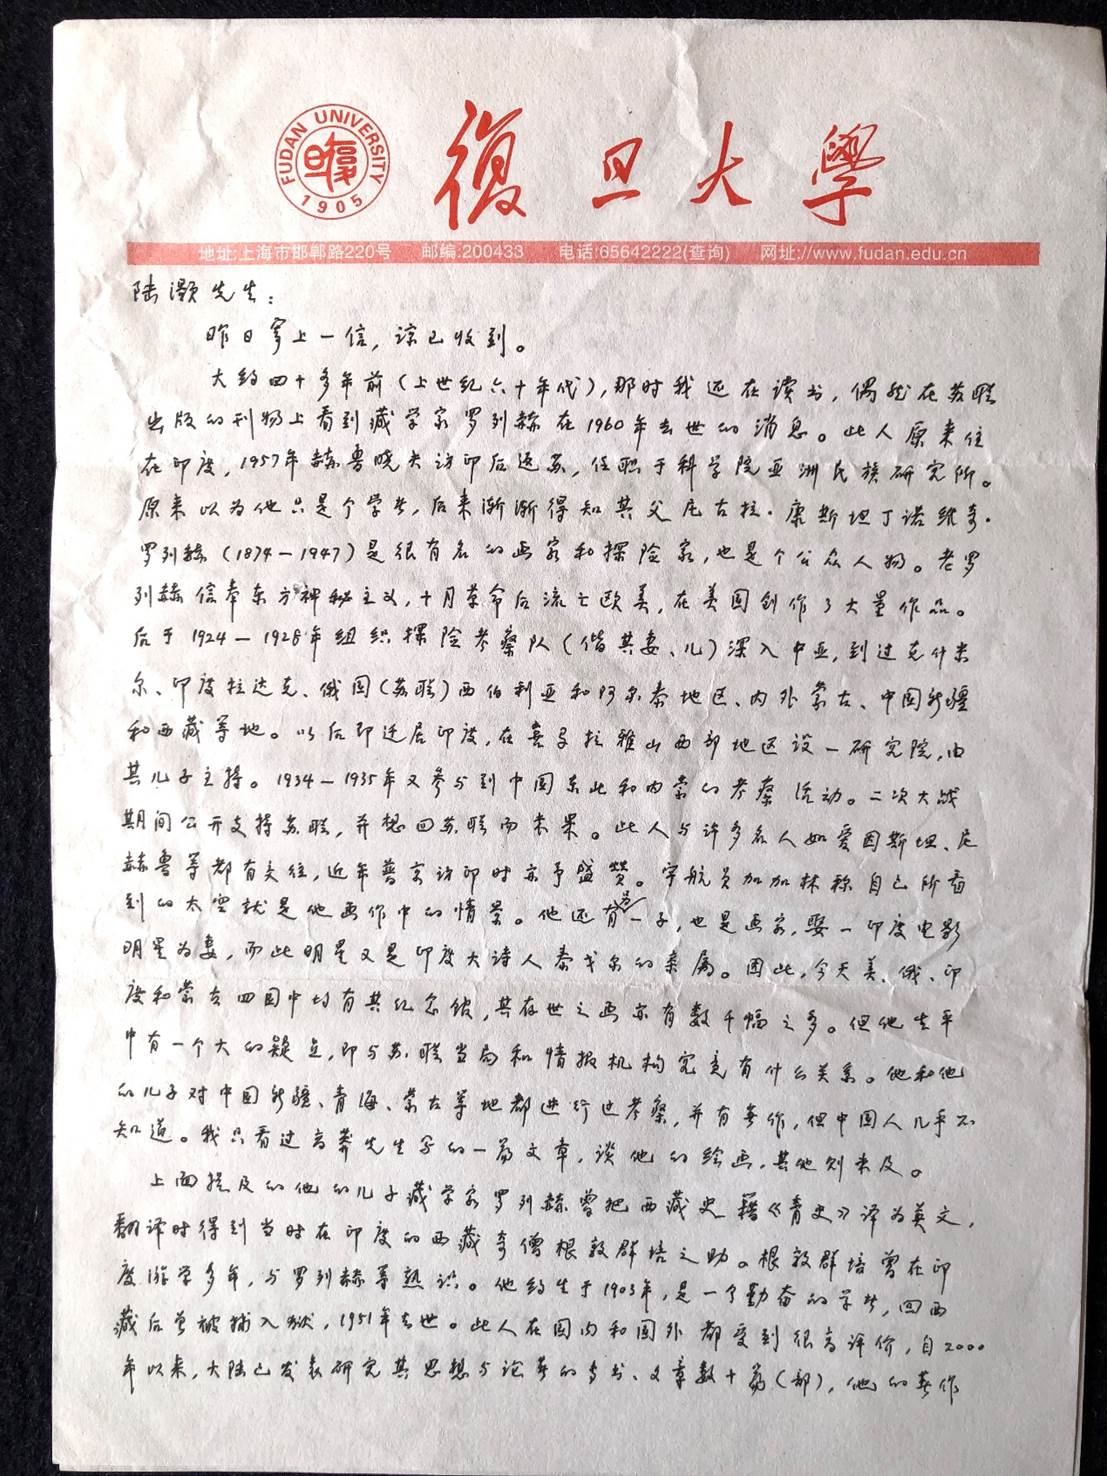 FUDAN UNIVERSITY
1905
復旦大學
地址:上海市邯郸路220号 邮编:200433 电话:65642222(查询) 网址://www.fudan.edu.cn
陆灏先生：
昨日寄上一信，谅已收到。
大约四十多年前（上世纪六十年代），那时我还在读书，偶然在苏联
出版的刊物上看到藏学家罗列赫在1960年去世的消息。此人原来住
在印度，1957年赫鲁晓夫访印后返苏，任职于科学院亚洲民族研究所。
原来以为他只是个学者，后来渐渐得知其父尼古拉·康斯坦丁诺维奇·
罗列赫（1874—1947）是很有名的画家和探险家，也是个公众人物。老罗
列赫信奉东方神秘主义，十月革命后流亡欧美，在美国创作了大量作品。
后于1924—1928年组织探险考察队（偕其妻、儿）深入中亚，到过克什米
尔、印度拉达克、俄国（苏联）西伯利亚和阿尔泰地区、内外蒙古、中国新疆
和西藏等地。以后即迁居印度，在喜马拉雅山西部地区设一研究院，由
其儿子主持。1934—1935年又参与到中国东北和内蒙的考察活动。二次大战
期间公开支持苏联，并想回苏联而未果。此人与许多名人如爱因斯坦、尼
赫鲁等都有交往，近年普京访印时亦予盛赞。宇航员加加林称自己所看
到的太空就是他画作中的情景。他还有另一子，也是画家，娶一印度电影
明星为妻，而此明星又是印度大诗人泰戈尔的亲属。因此，今天美、俄、印
度和蒙古四国中均有其纪念馆，其存世之画亦有数千幅之多。但他生平
中有一个大的疑点，即与苏联当局和情报机构究竟有什么关系。他和他
的儿子对中国新疆、青海、蒙古等地都进行过考察，并有著作，但中国人几乎不
知道。我只看过高莽先生写的一篇文章，谈他的绘画，其他则未及。
上面提及的他的儿子藏学家罗列赫曾把西藏史籍《青史》译为英文，
翻译时得到当时在印度的西藏奇僧根敦群培之助。根敦群培曾在印
度游学多年，与罗列赫等熟识。他约生于1903年，是一个勤奋的学者，回西
藏后曾被捕入狱，1951年去世。此人在国内和国外都受到很高评价，自2000
年以来，大陆已发表研究其思想与论著的专书、文章数十篇（部），他的著作